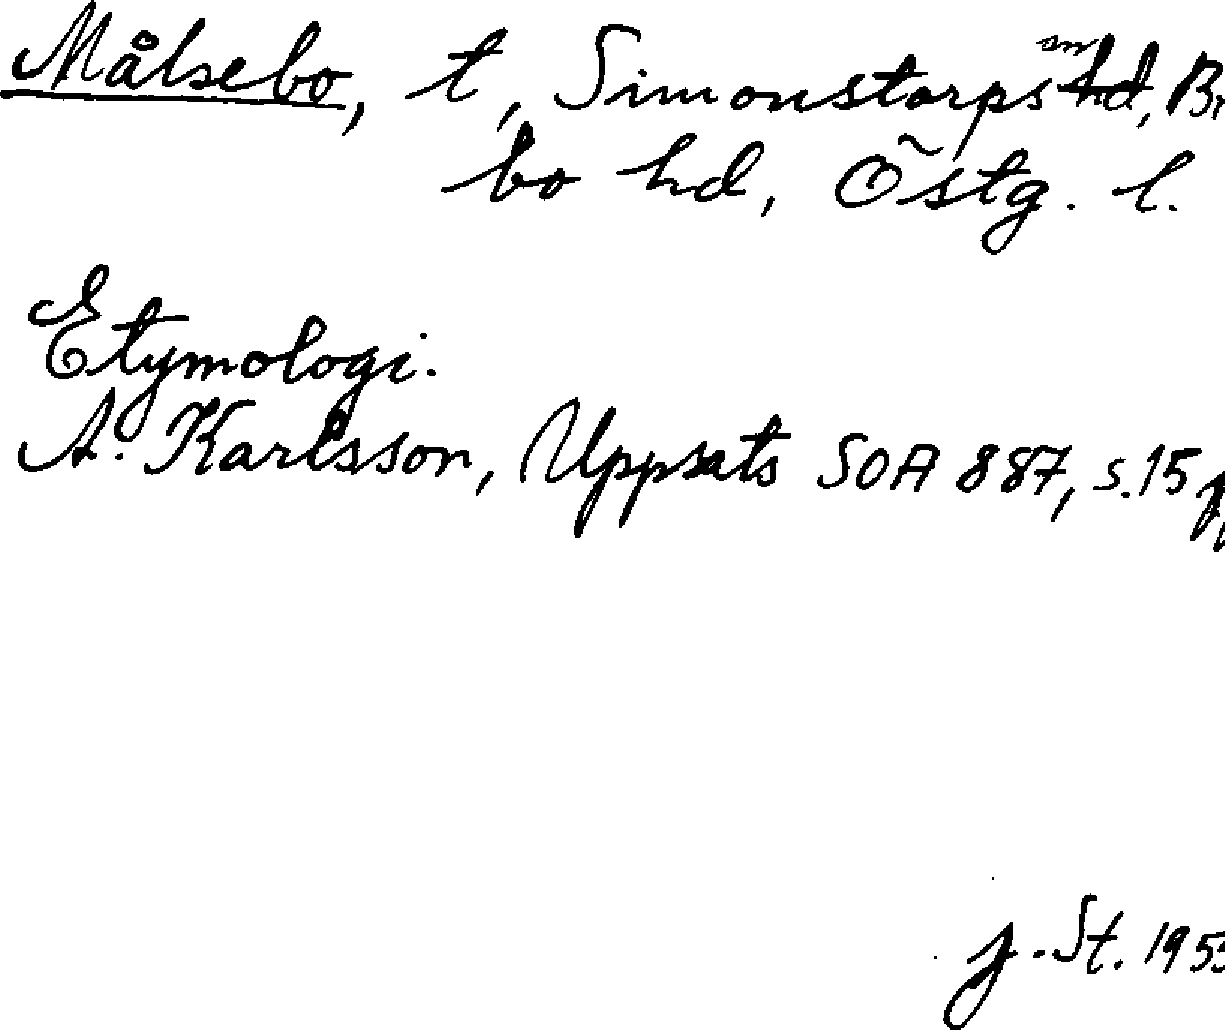 Målsebo, t, Simonstorps m hd, Br
bo hd, Östg. l.
Etymologi.
A. Karlsson, Uppsats SOA 887, s. 15
J. St. 1955